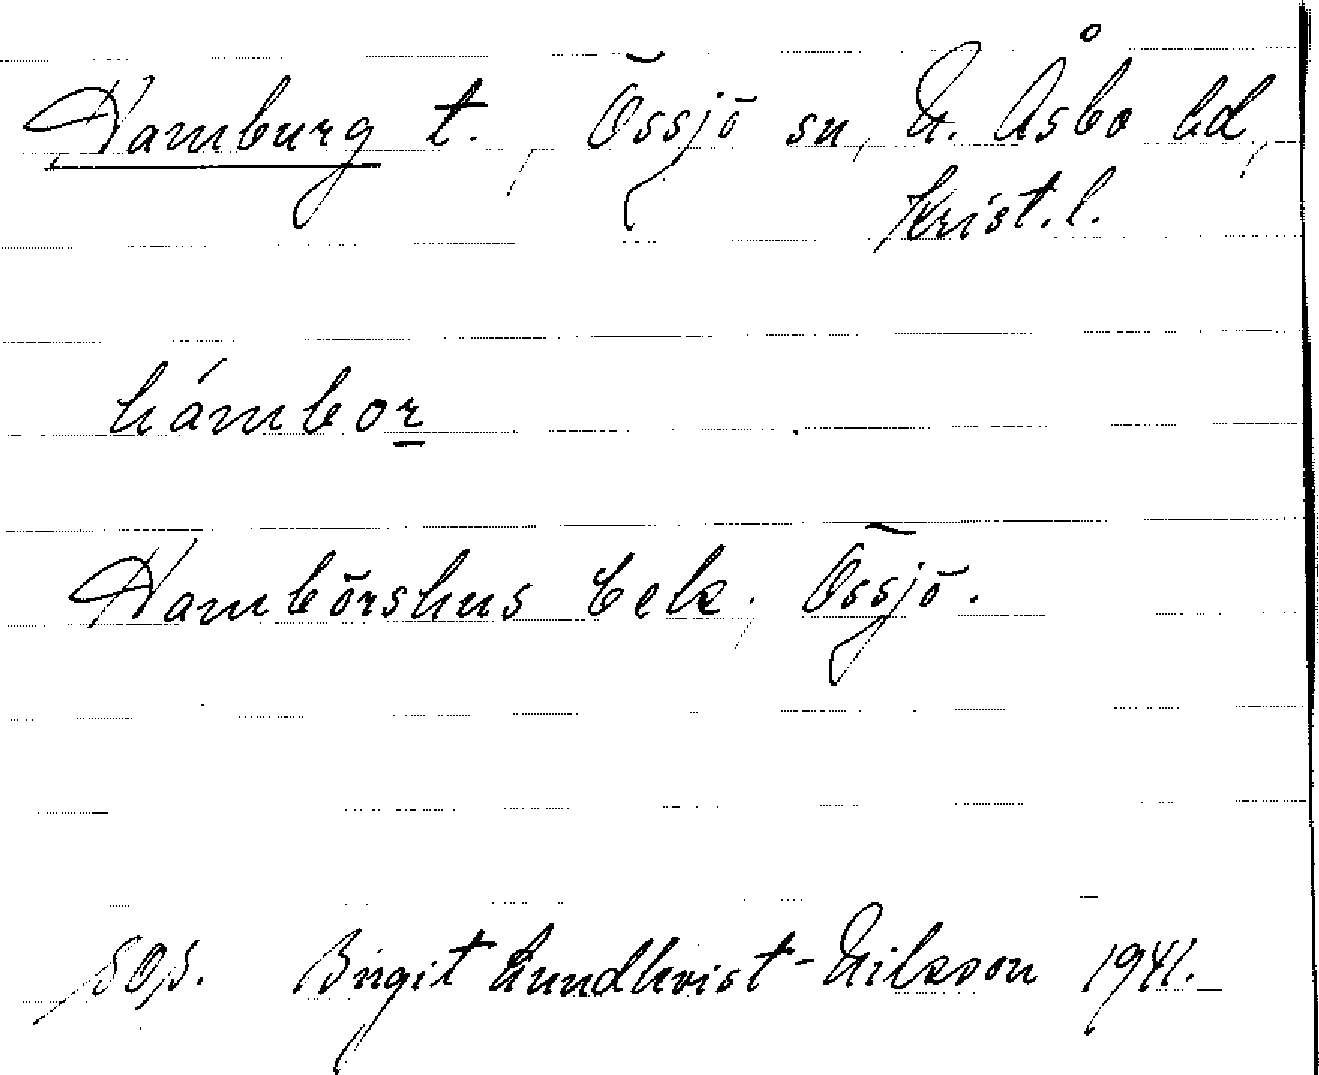 Hamburg t., Össjö sn, N. Åsbo hd,
Krist. l.
hámbor
Hambörshus bek, Össjö.
Birgit Lundkvist-Nilsson 1941.